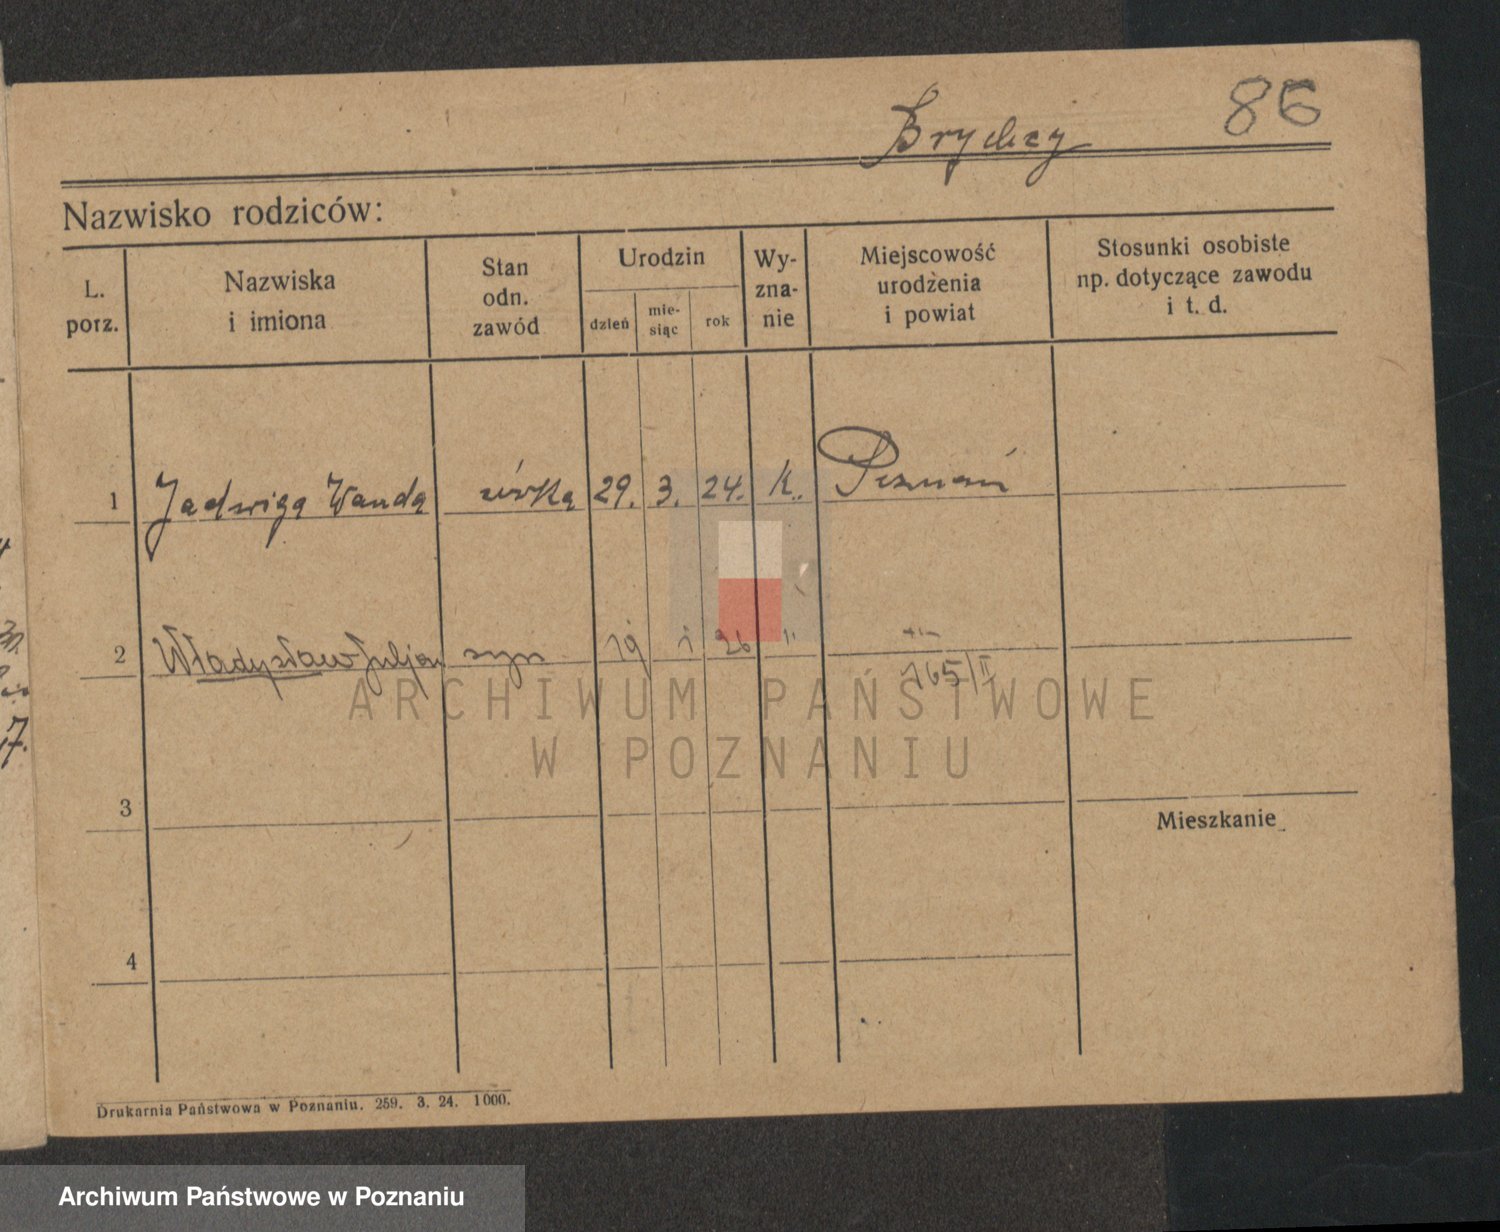 86
Brychcy
Nazwisko rodziców:
L. porz.
Nazwiska i imiona
Stan odn. zawód
Urodzin
dzień
mie-
siąc
rok
Wy-
zna-
nie
Miejscowość
urodzenia
i powiat
Stosunki osobiste
np. dotyczące zawodu
i t. d.
1 Jadwiga Wanda córka 29. 3. 24. k. Poznań
2 Władysław Juljan syn 19 1 26 "
165/II
ARCHIWUM PAŃSTWOWE
W POZNANIU
3
Mieszkanie
4
Drukarnia Państwowa w Poznaniu. 259. 3. 24. 1000.
17.
Archiwum Państwowe w Poznaniu